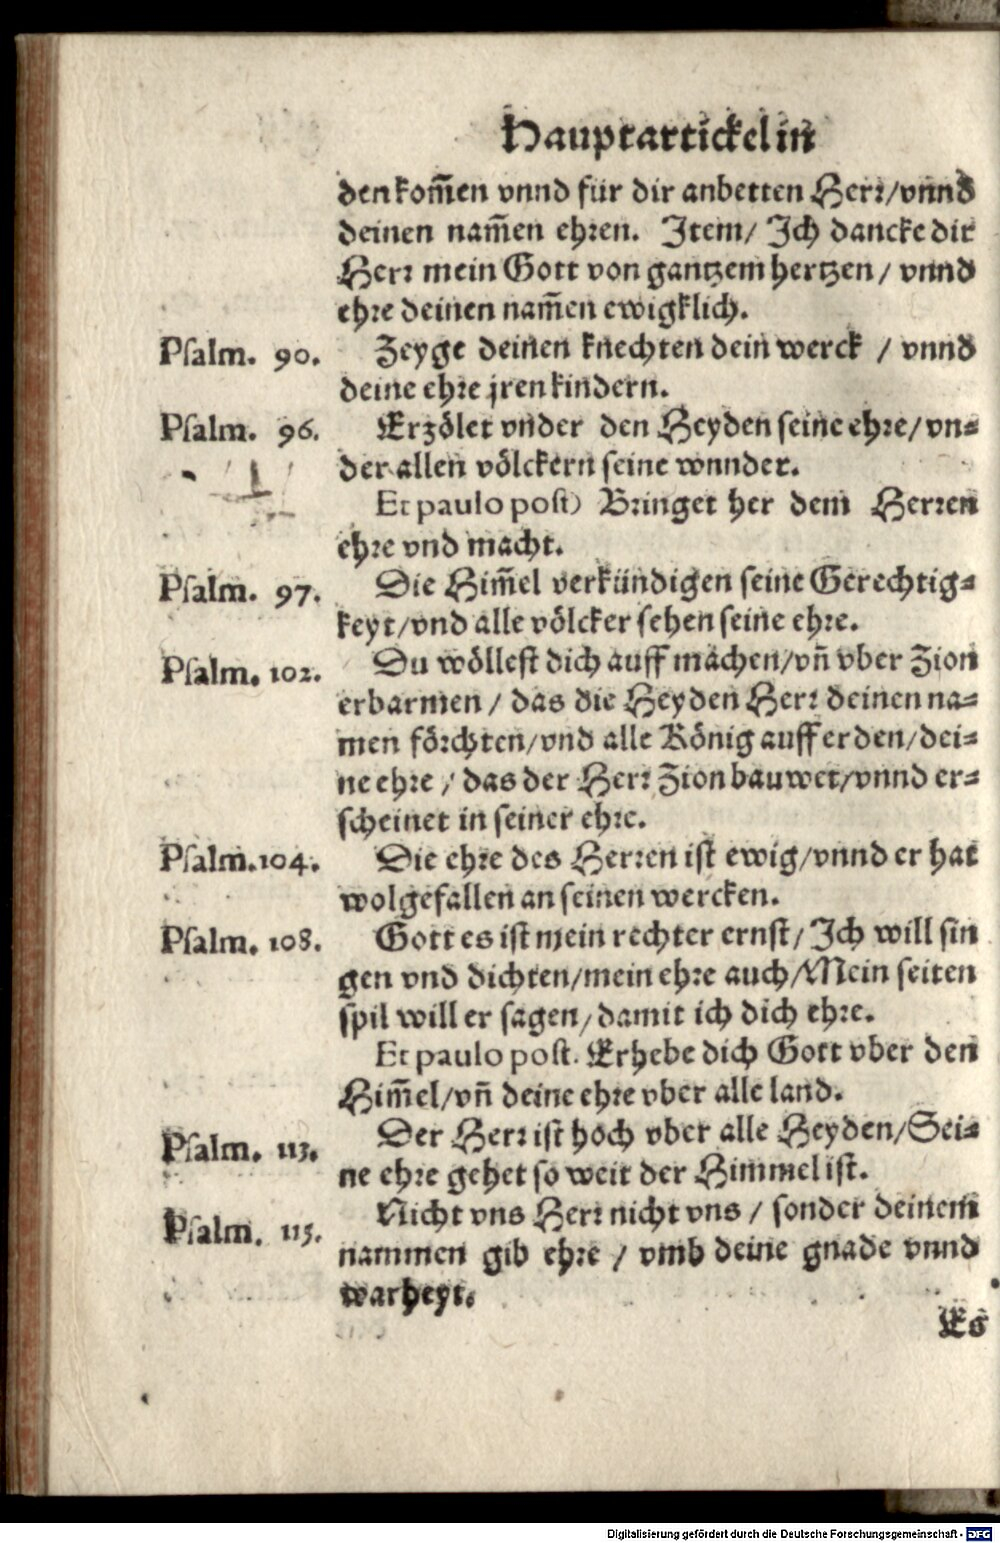 Hauptartickel in
den kom̃en vnnd für dir anbetten Herr/vnnd
deinen nam̃en ehren. Item/ Ich dancke dir
Herr mein Gott von gantzem hertzen / vnnd
ehre deinen nam̃en ewigklich.
Psalm. 90. Zeyge deinen knechten dein werck / vnnd
deine ehre jren kindern.
Psalm. 96. Erzölet vnder den Heyden seine ehre/ vn⸗
der allen völckern seine wunder.
Et paulo post) Bringet her dem Herren
ehre vnd macht.
Psalm. 97. Die Him̃el verkündigen seine Gerechtig⸗
keyt/vnd alle völcker sehen seine ehre.
Psalm. 102. Du wöllest dich auff machen/vñ vber Zion
erbarmen / das die Heyden Herr deinen na⸗
men förchten/vnd alle König auff erden/dei⸗
ne ehre / das der Herr Zion bauwet/vnnd er⸗
scheinet in seiner ehre.
Psalm. 104. Die ehre des Herren ist ewig/vnnd er hat
wolgefallen an seinen wercken.
Psalm. 108. Gott es ist mein rechter ernst/ Ich will sin
gen vnd dichten/mein ehre auch/Mein seiten
spil will er sagen/damit ich dich ehre.
Et paulo post. Erhebe dich Gott vber den
Him̃el/vñ deine ehre vber alle land.
Psalm. 113. Der Herr ist hoch vber alle Heyden/Sei⸗
ne ehre gehet so weit der Himmel ist.
Psalm. 115. Nicht vns Herr nicht vns / sonder deinem
nammen gib ehre / vmb deine gnade vnnd
warheyt.
Es
Digitalisierung gefördert durch die Deutsche Forschungsgemeinschaft - DFG